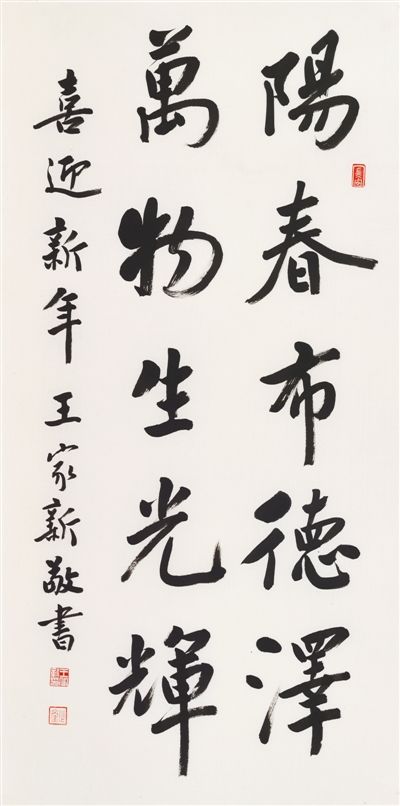 陽春布德澤
萬物生光輝
喜迎新年王家新敬書